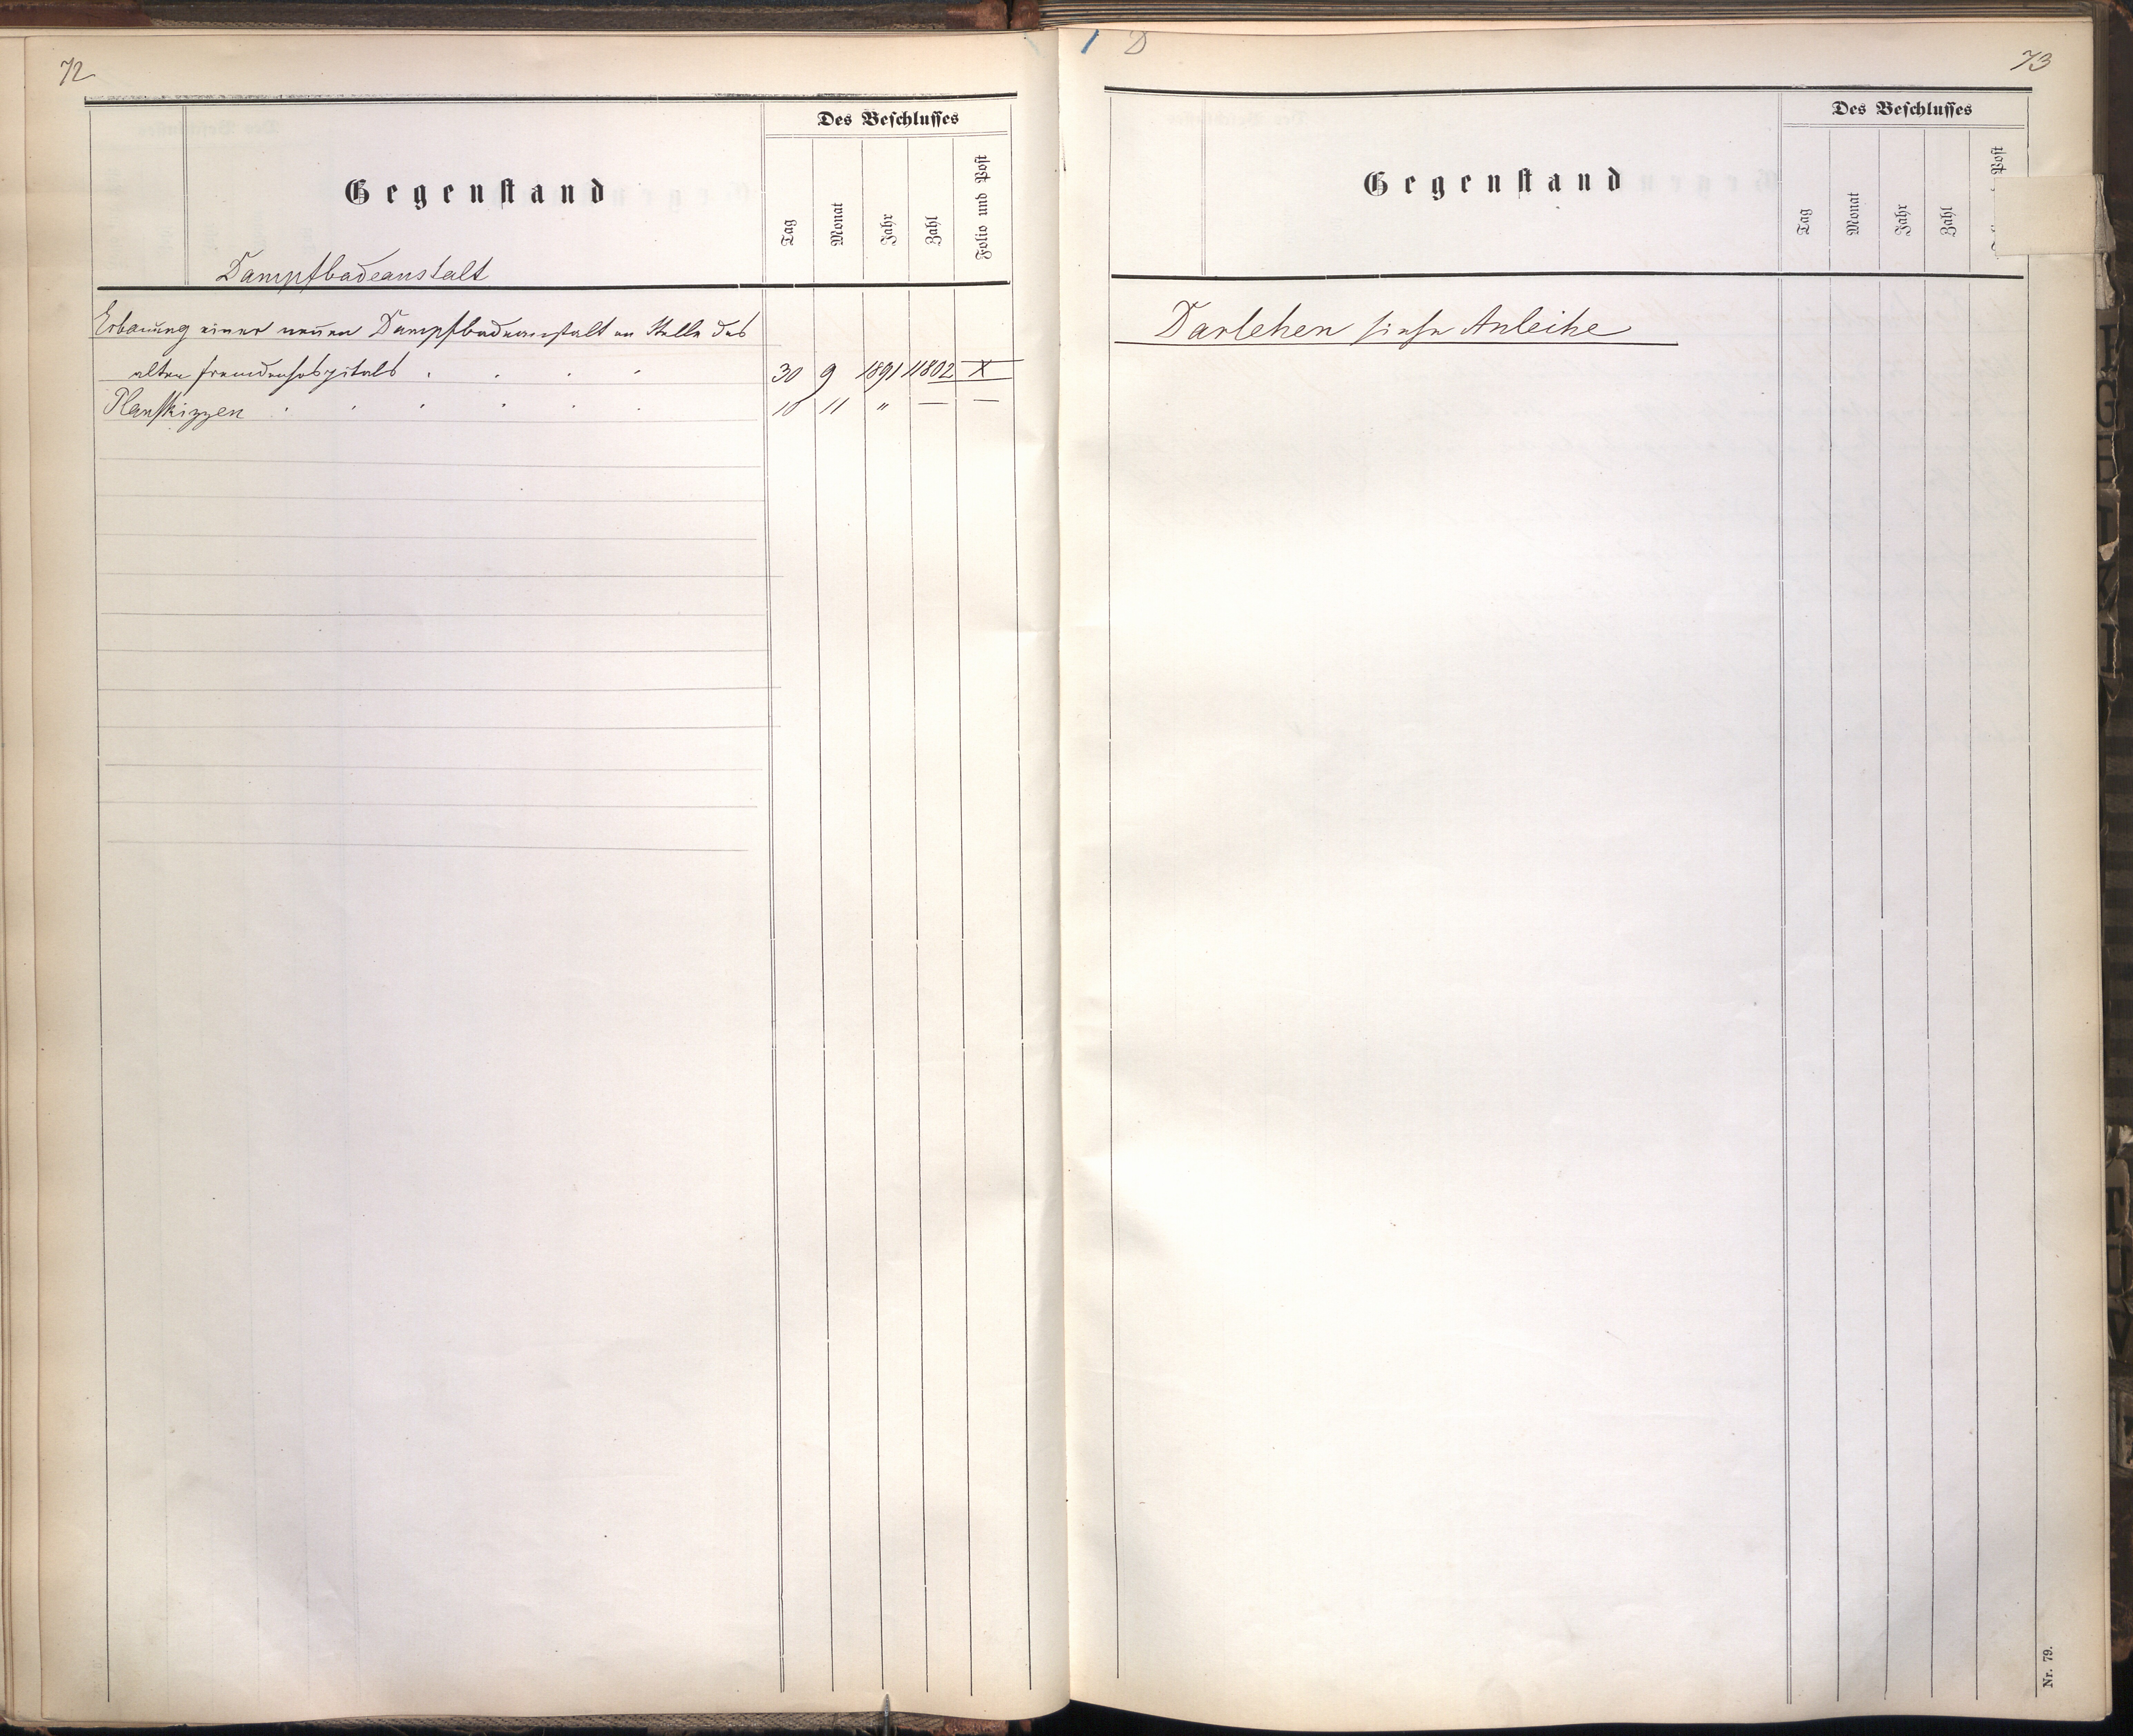 72
Des Beschlusses
Gegenstand
Tag
Monat
Jahr
Zahl
Folio und Post
Dampfbadeanstalt
Erbauung einer neuen Dampfbadeanstalt an Stelle des
alten Fremdenhospitals . . . . 30 9 1891 11802 X
Planskizzen . . . . . . 10 11 " — —
1 D
73
Des Beschlusses
Gegenstand
Tag
Monat
Jahr
Zahl
Post
Darlehen siehe Anleihe
Nr. 79.